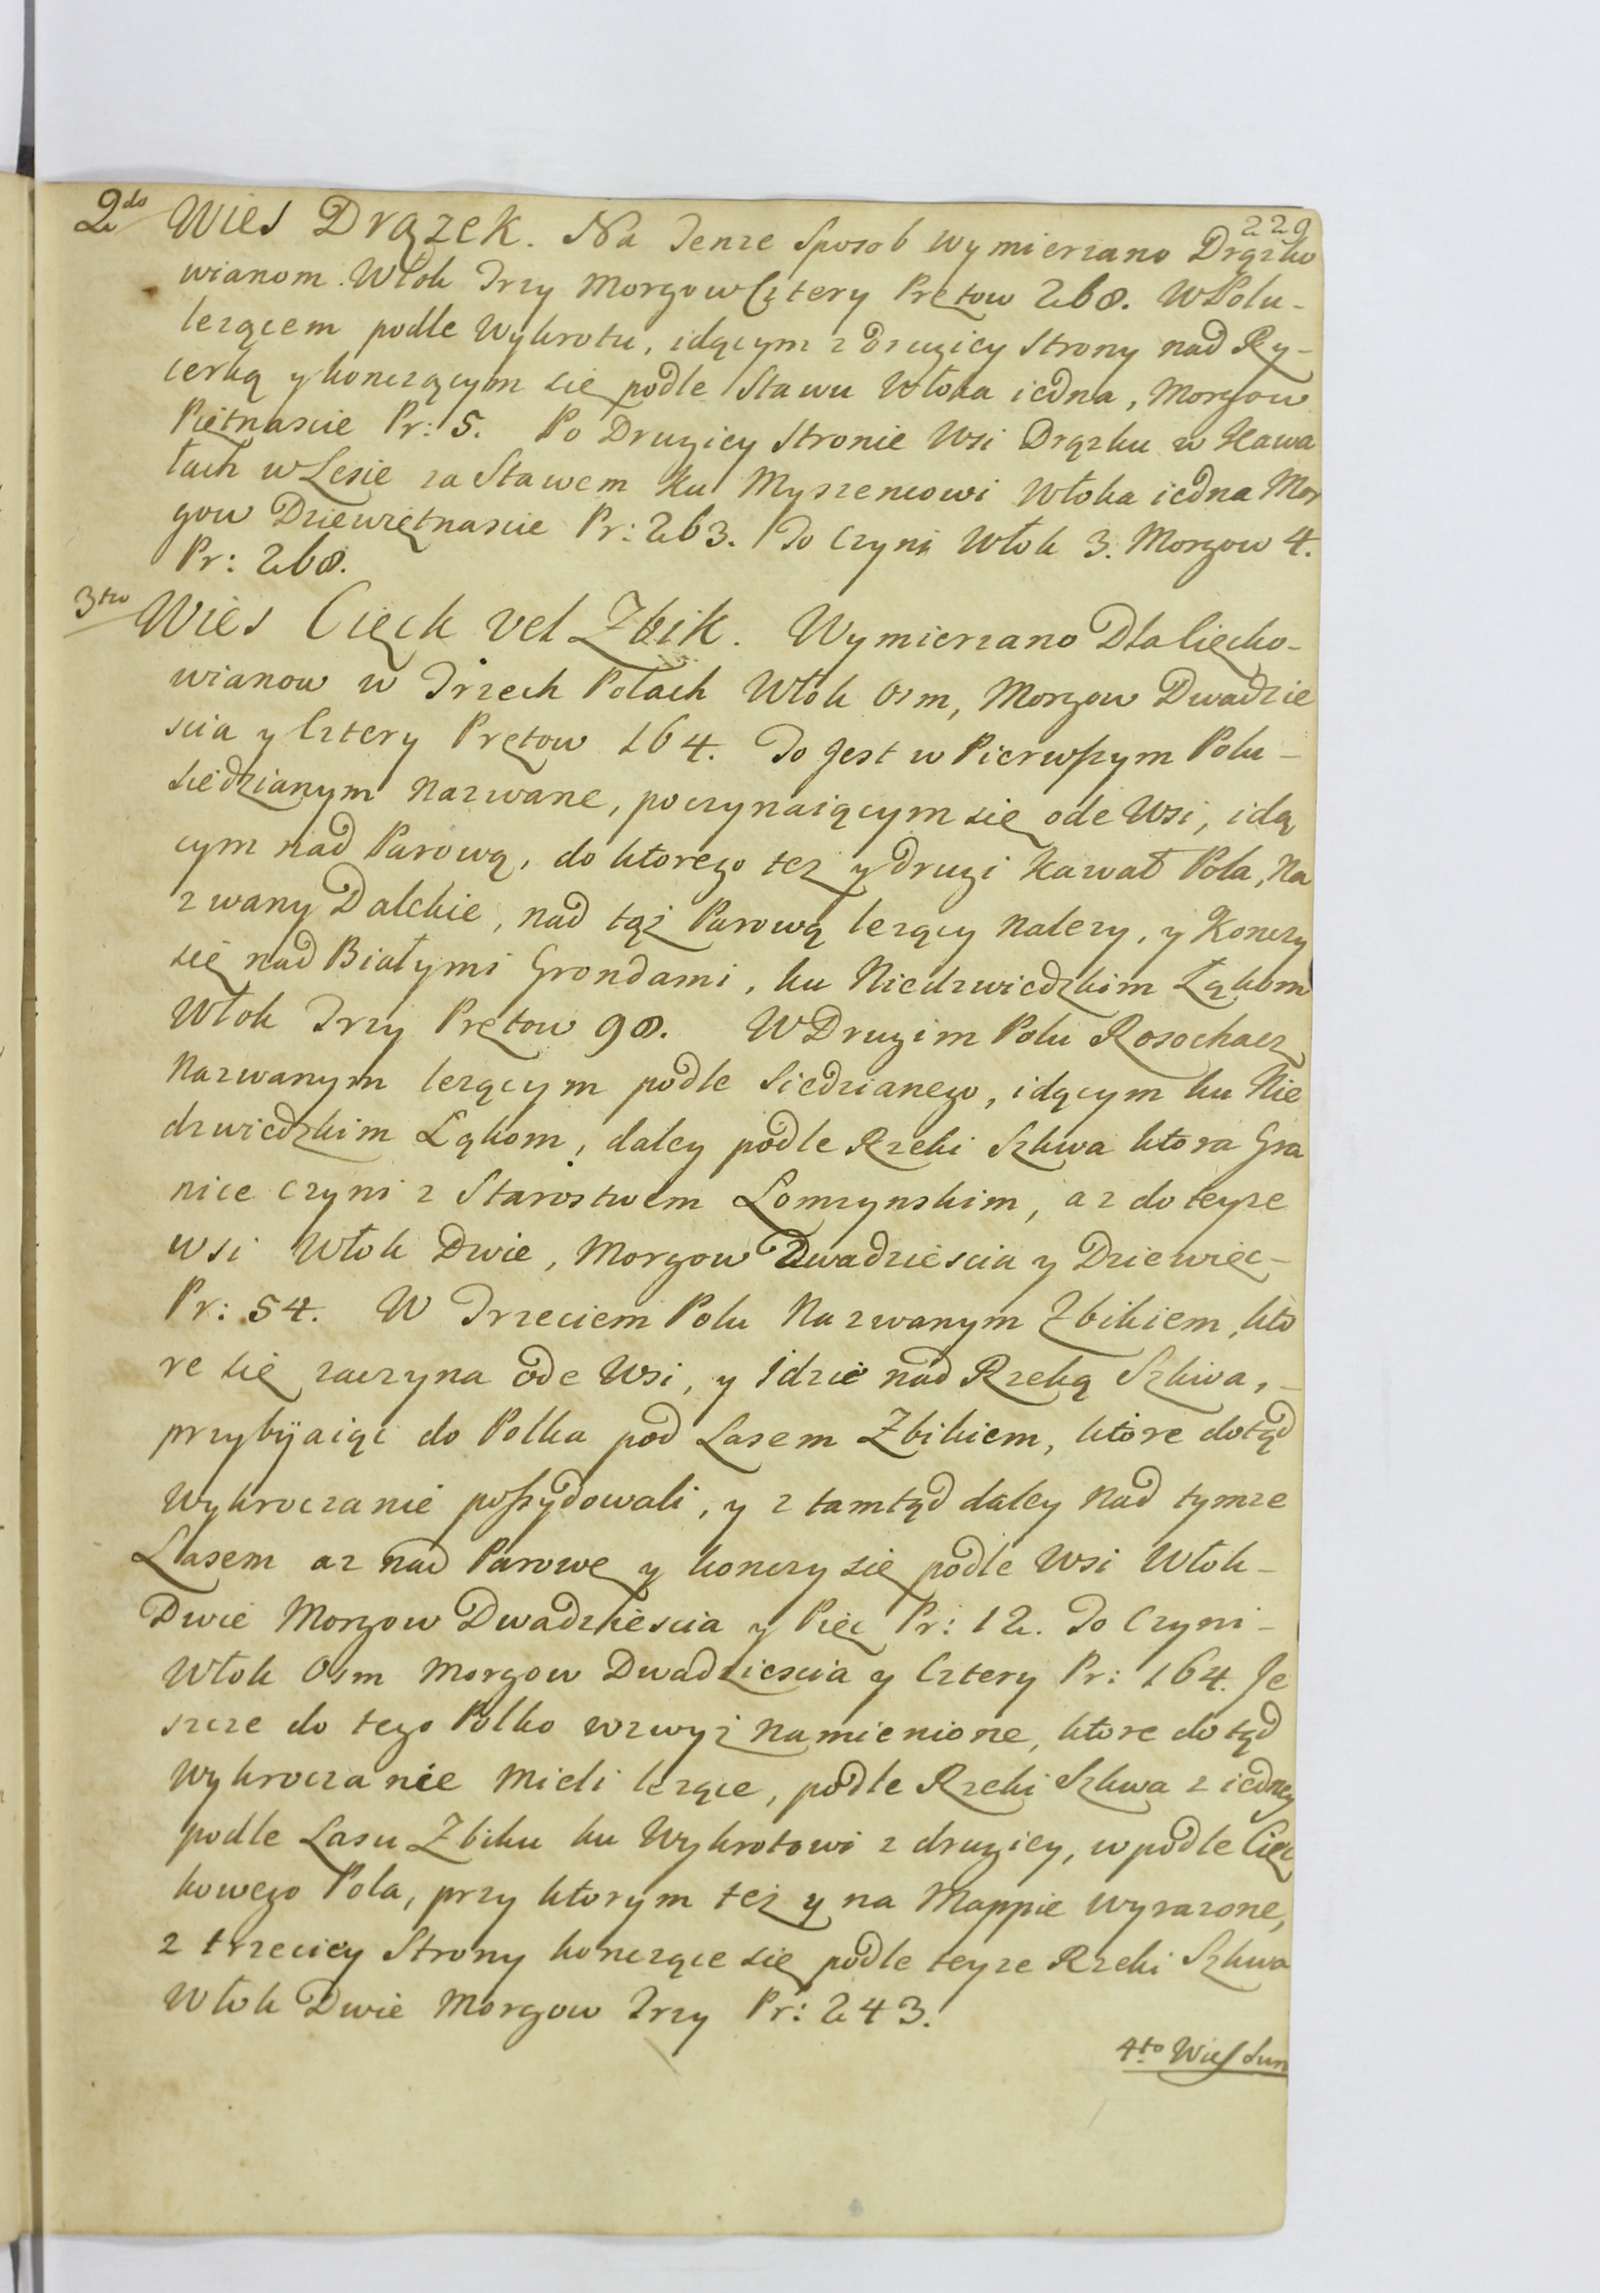 229
2do Wies Drązek. Na Tenze Sposob wymierzano Drązko
wianom. Włok Trzy Morgow Cztery Pretow 268. W Polu-
lezącem podle Wykrotu, idącym z drugiey Strony nad Ry-
cerką y konczącym się podle Stawu Włoka iedna, Morgow
Piętnascie Pr: 5. Po Drugiey Stronie Wsi Drązku w Kawa
łach w Lesie za Stawem ku Myszencowi Włoka iedna Mor
gow Dziewiętnascie Pr: 263. To Czyni Włok 3. Morgow 4.
Pr: 268.
3tio Wies Cięck vel Zbik. Wymierzano Dla Cięcko-
wianow w Trzech Polach Włok Osm, Morgow Dwadzie
scia y Cztery Prętow 164. To Jest w Pierwszym Polu-
siedzianym nazwane, poczynaiącym się ode Wsi, idą
cym nad Parową, do ktorego tez y drugi Kawał Pola, Na
zwany Dalekie, nad tąż Parową lezący nalezy, y Konczy
się nad Białymi Grondami, ku Niedzwiedzkim Łąkom
Włok Trzy Prętow 98. W Drugim Polu Rosochacz
Nazwanym lezącym podle Siedzianego, idącym ku Nie
dzwiedzkim Łąkom, daley podle Rzeki Szkwa ktora Gra
nice czyni z Starostwem Łomzynskim, az do teyze
wsi Włok Dwie, Morgow Dwadziescia y Dziewięc-
Pr: 54. W Trzeciem Polu Nazwanym Zbikiem, kto
re się zaczyna ode Wsi, y Idzie nad Rzeką Szkwa,-
przybijaiąc do Polka pod Lasem Zbikiem, ktore dotąd
Wykroczanie possydowali, y z tamtąd daley nad tymze
Lasem az nad Parowę y konczy się podle Wsi Włok-
Dwie Morgow Dwadziescia y Pięc Pr: 12. To Czyni-
Włok Osm Morgow Dwadziescia y Cztery Pr: 164. Je
szcze do tego Polko wzwyż namienione, ktore dotąd
Wykroczanie mieli lezące, podle Rzeki Szkwa z iedney
podle Lasu Zbiku ku Wykrotowi z drugiey, w podle Cięc
kowego Pola, przy ktorym też y na Mappie wyrazone,
z trzeciey Strony konczące się podle teyze Rzeki Szkwa
Włok Dwie Morgow Trzy Pr: 243.
4to Wies